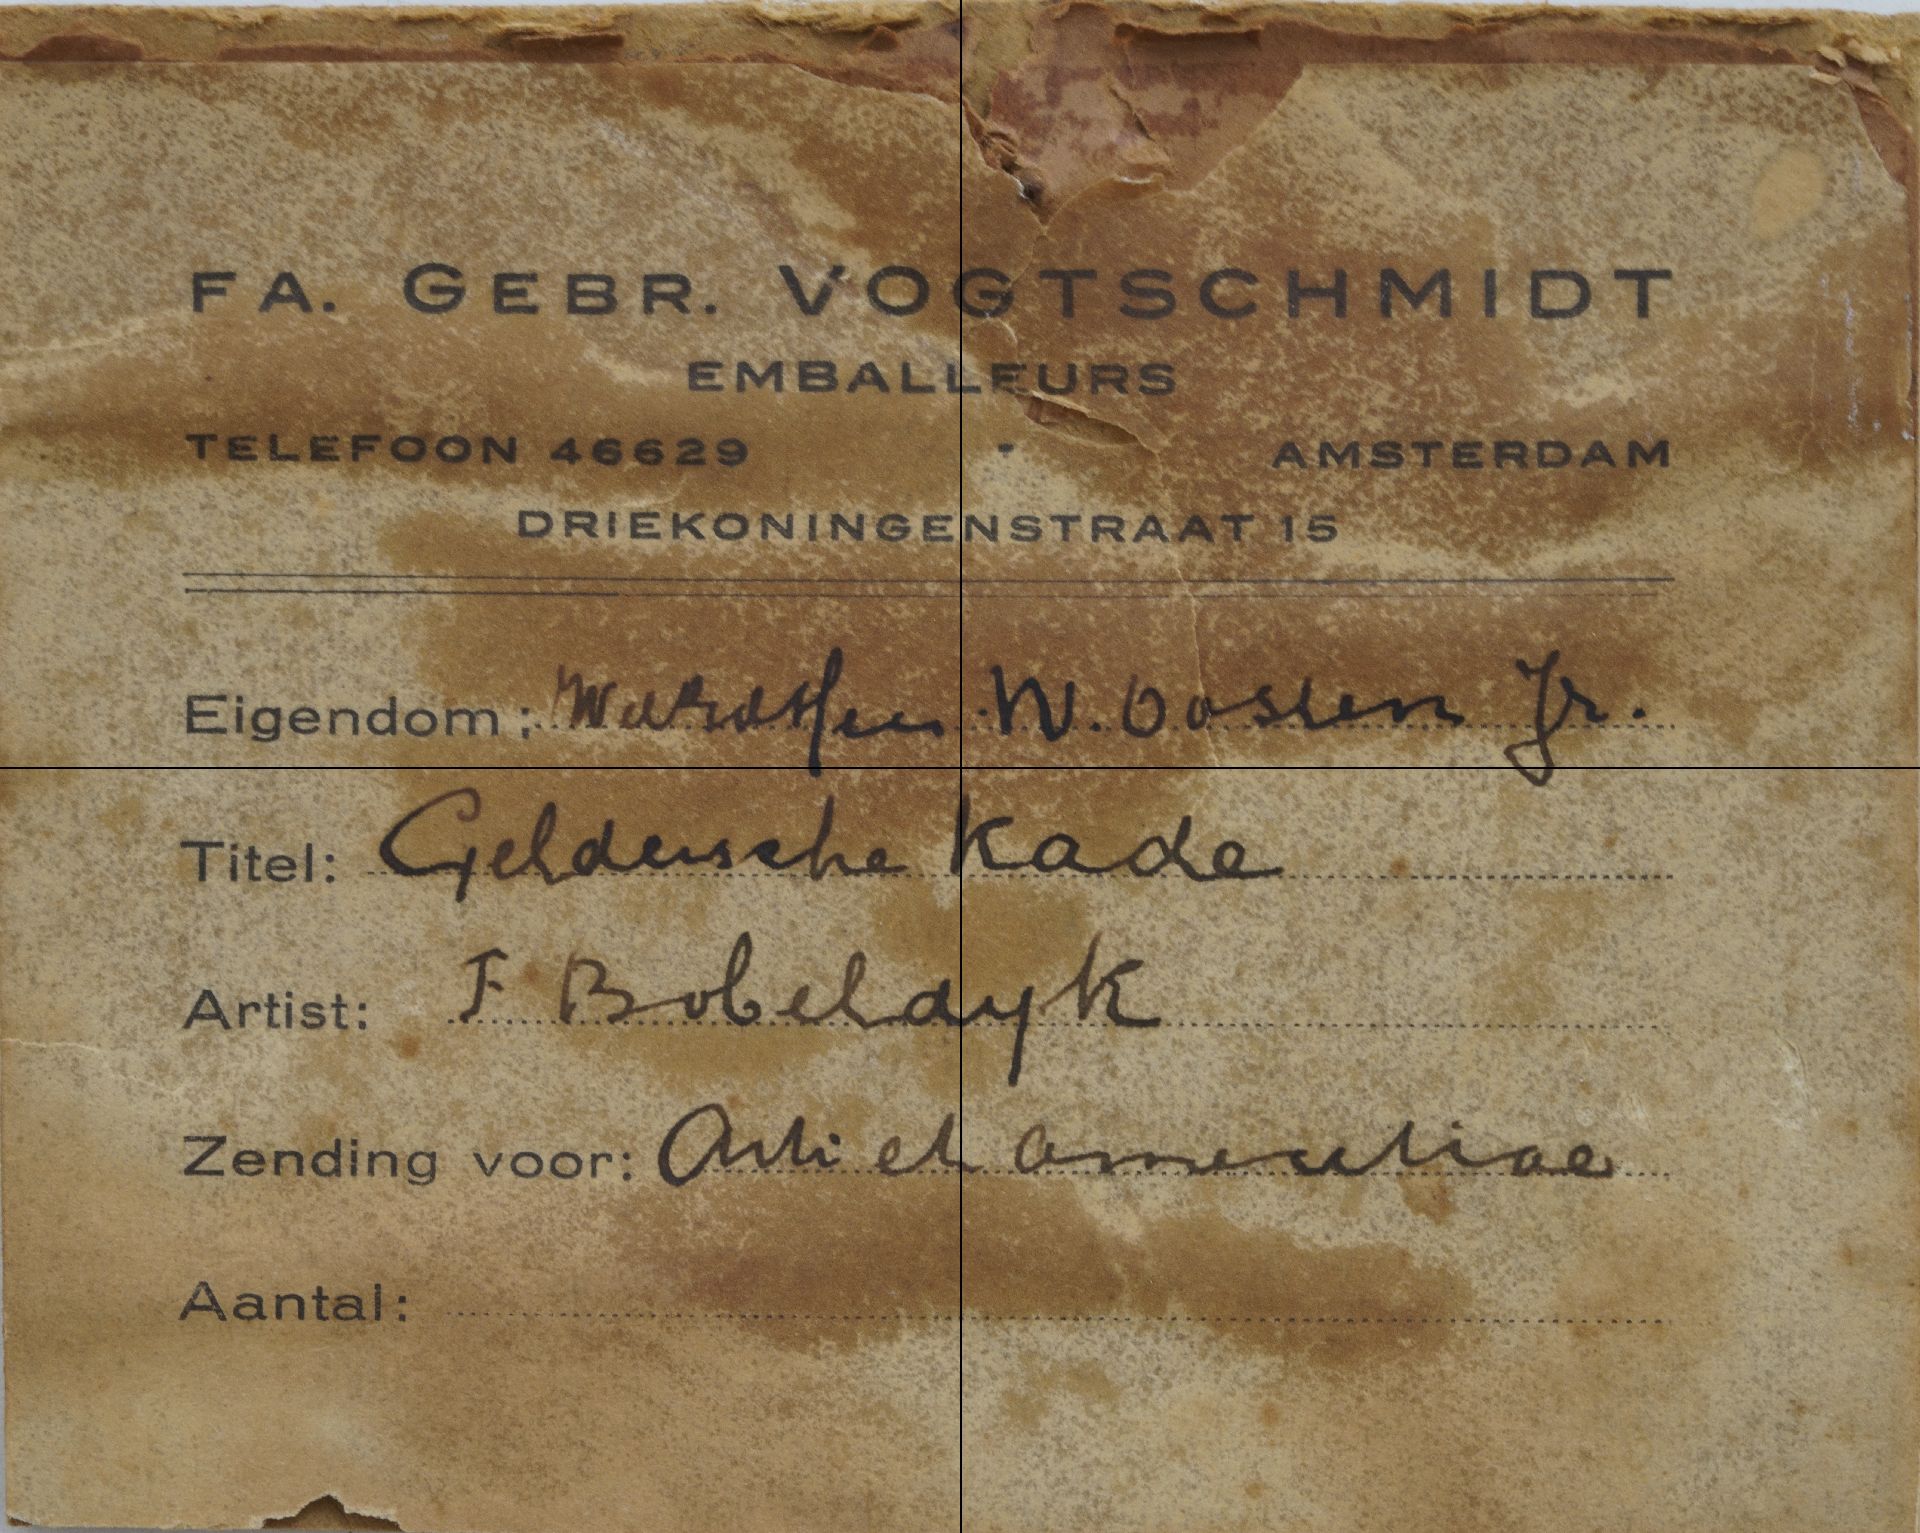 FA. GEBR. VOGTSCHMIDT
EMBALLEURS
TELEFOON 46629 - AMSTERDAM
DRIEKONINGENSTRAAT 15
Eigendom: W. Oosten Jr.
Titel: Geldersche Kade
Artist: F Bobeldyk
Zending voor: Arti et amicitiae
Aantal: